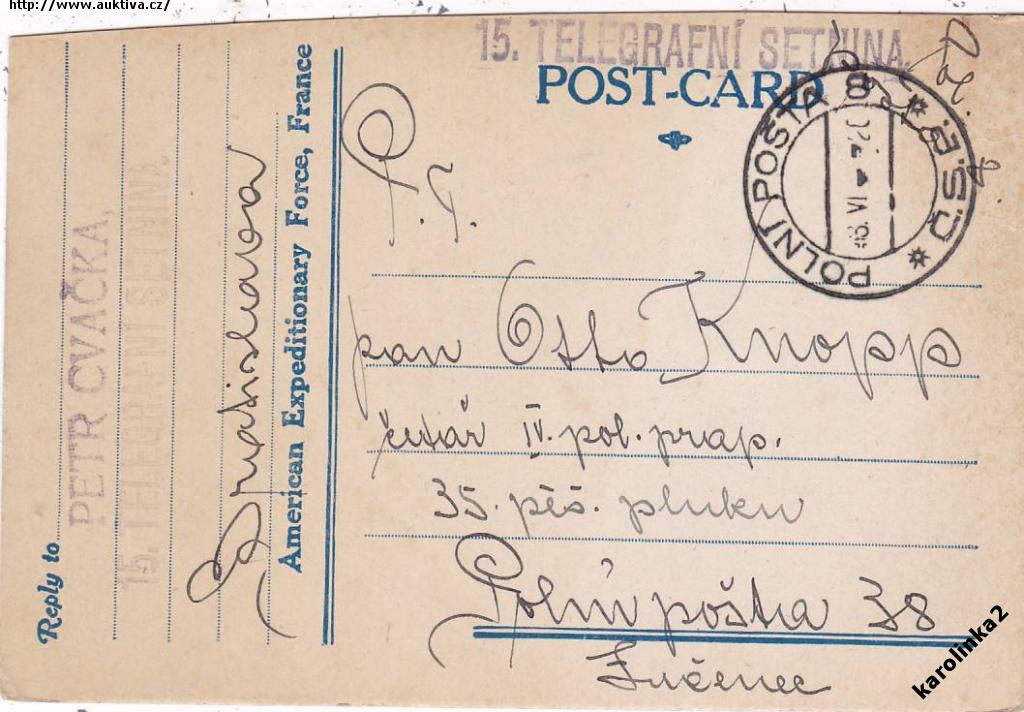 http://www.auktiva.cz/
15. TELEGRAFNÍ SETNINA.
POST-CARD
POLNÍ POŠTA 28 * Č.S.P. *
Reply to
PETR CVAČKA,
15. TELEGRAFNÍ SETNINA.
Bratislava
American Expeditionary Force, France
P.T.
pan Otto Knopp
četař IV. pol. prap.
35. pěš. pluku
Polní pošta 38
Lučenec
karolinka2